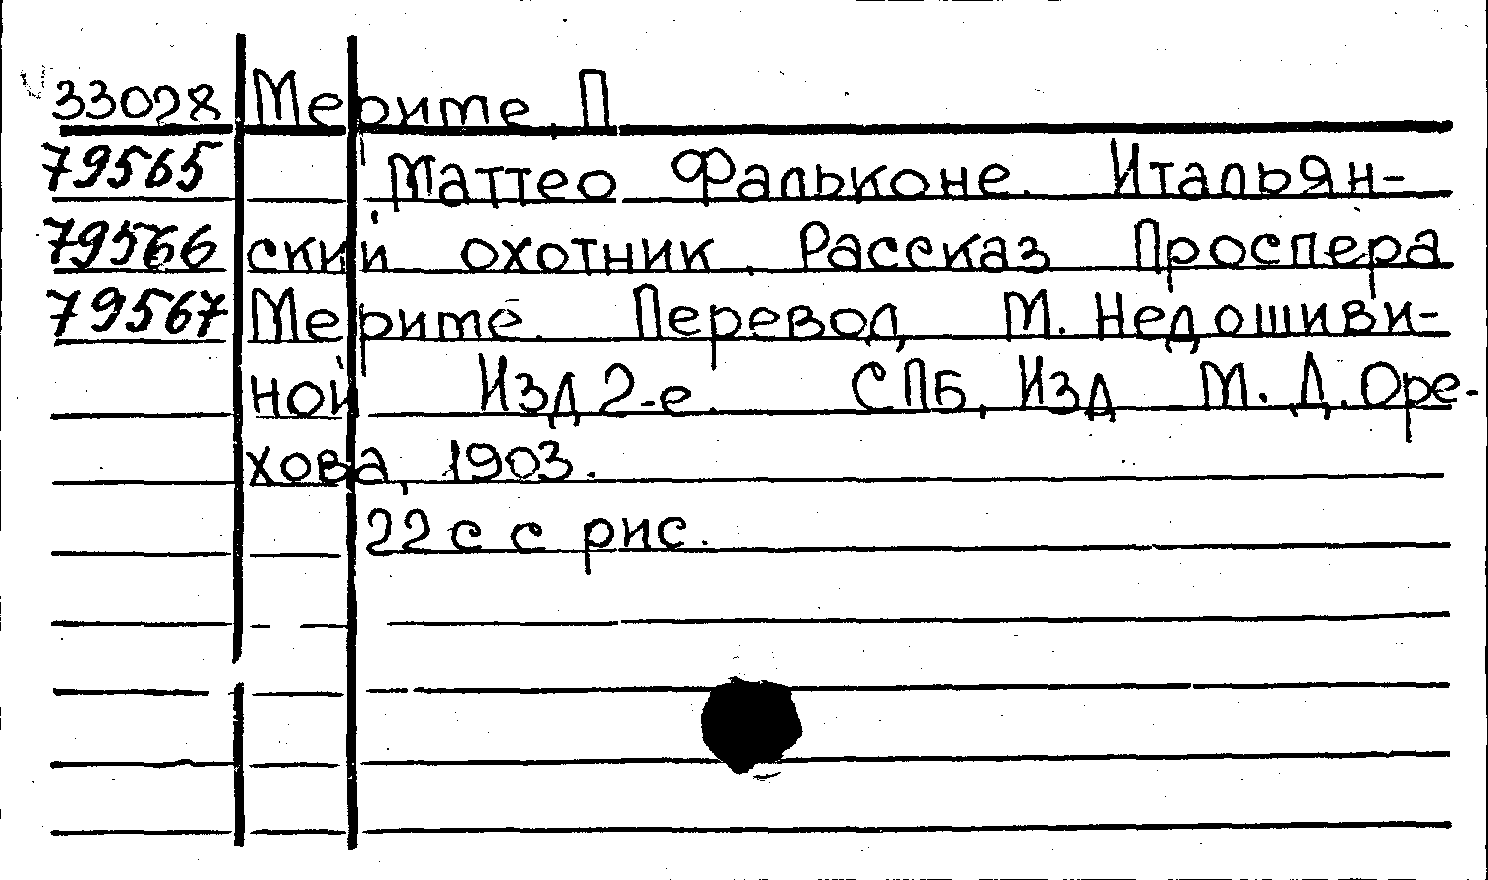 33028 Мериме, П
79565 Маттео Фальконе. Итальян-
79566 ский охотник. Рассказ Проспера
79567 Мериме. Перевод М. Недошиви-
ной Изд 2-е. СПБ, Изд М. Д. Оре-
хова, 1903.
22 с с рис.